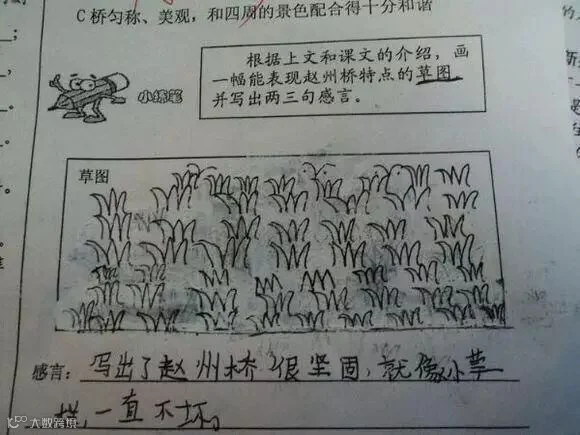 C 桥匀称、美观，和四周的景色配合得十分和谐
根据上文和课文的介绍，画
一幅能表现赵州桥特点的草图
并写出两三句感言。
小练笔
草图
感言：写出了赵州桥很坚固，就像小草
一样，一直不坏。
大数跨境